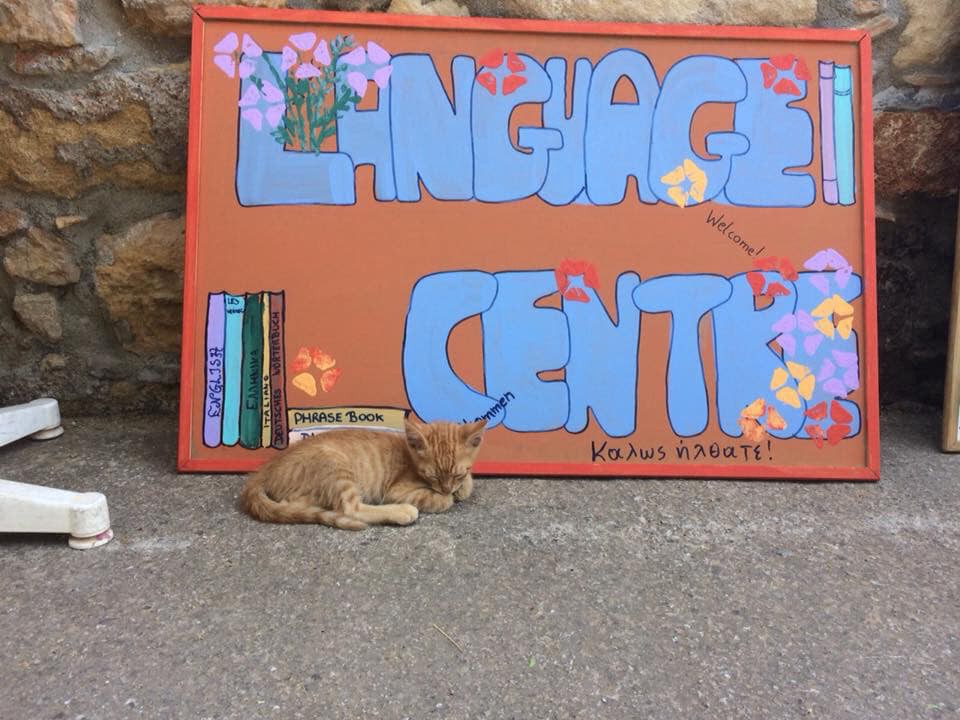 LANGUAGE
Welcome!
CENTRE
ENGLISH
ΕΛΛΗΝΙΚΑ
ITALIANO
DEUTSCHES WÖRTERBUCH
PHRASE BOOK
Καλως ήλθατε!